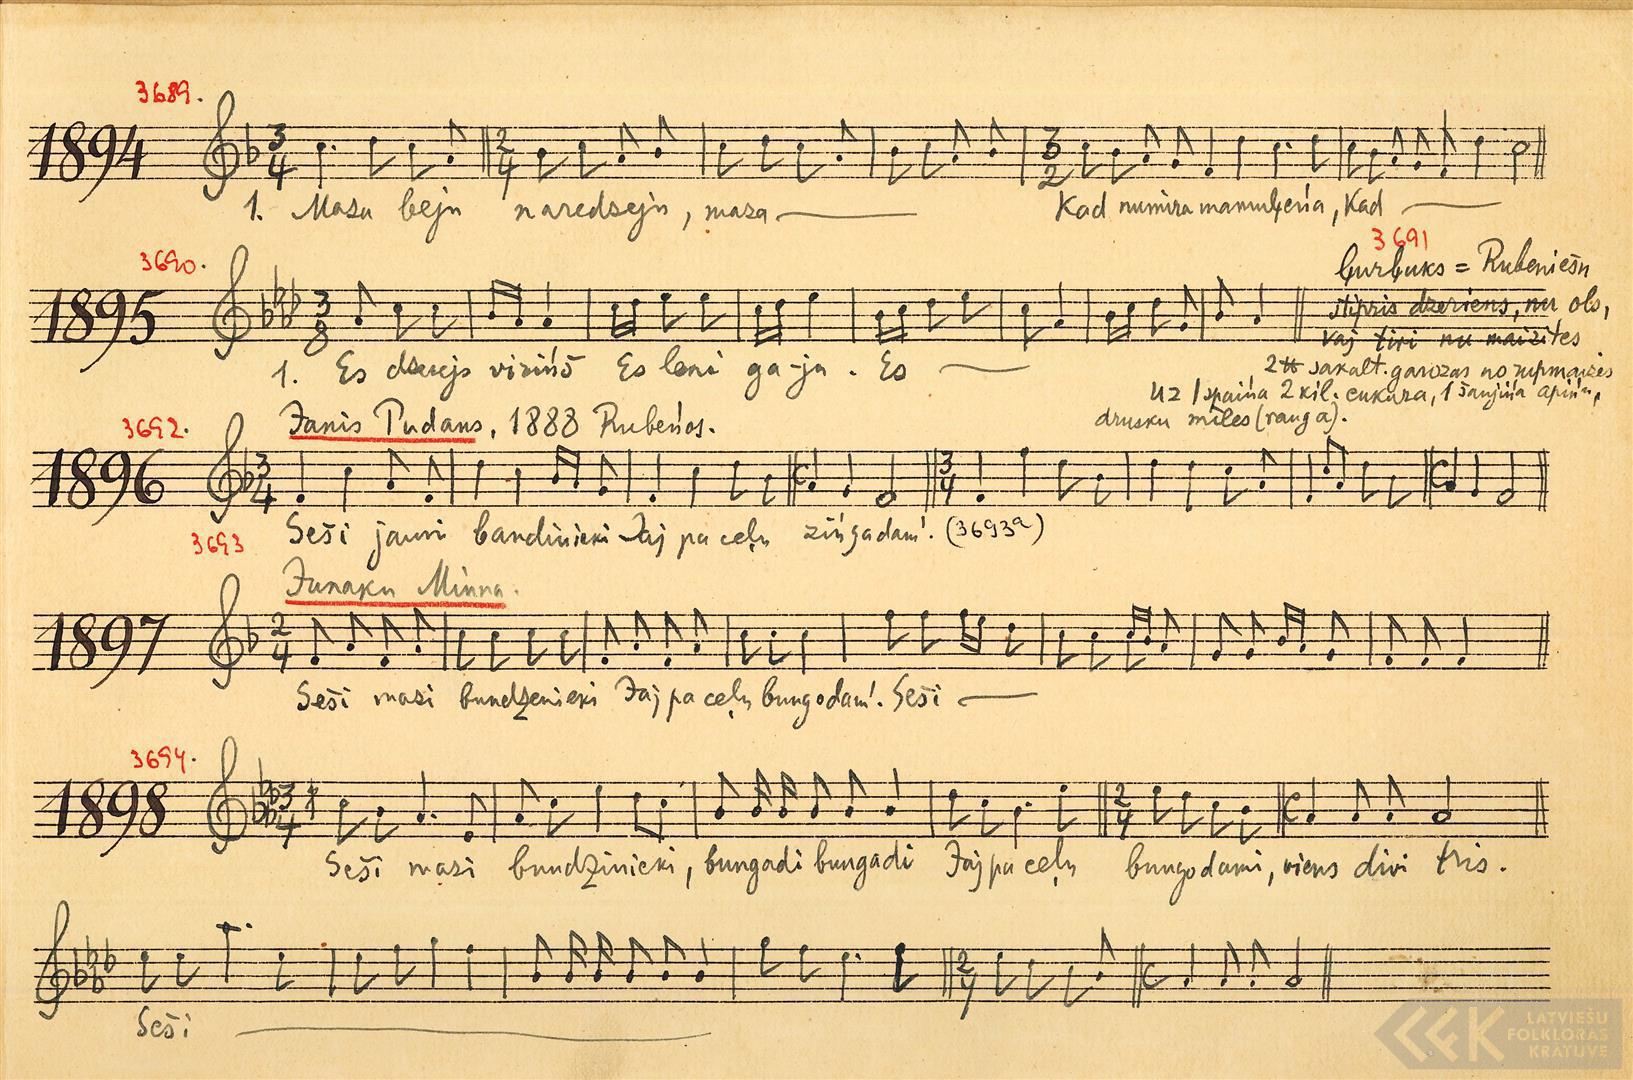 3689.
1894
3/4 2/4 3/2
1. Mazu beju naredzeju, maza — Kad numira mamuļeņa, Kad —
3690.
3691
1895
3/8
Gurbuks = Rubeniešu
stipris dzeriens, nu ols,
vaj tiri nu maizites
1. Es dzieejs Es leni ga-ja. Es —
2 ℔ sakalt. garozas no rupmaizes
uz 1 spaiņa 2 kil. cukura, 1 šaujiņa apiņu,
drusku miles (rauga).
3692.
Janis Pudans, 1888 Rubeņos.
1896
3/4 C 3/4 C
Seši jauni bandinieki Jaj pa ceļu ziņgadami. (3693a)
3693
Junaku Minna.
1897
2/4
Seši mazi bundzenieki Jaj pa ceļu bungodami. Seši —
3694.
1898
3/4 2/4 C
Seši mazi bundzinieki, bungadi bungadi Jaj pa ceļu bungodami, viens divi tris.
2/4 C
Seši —
LATVIEŠU
FOLKLORAS
KRĀTUVE